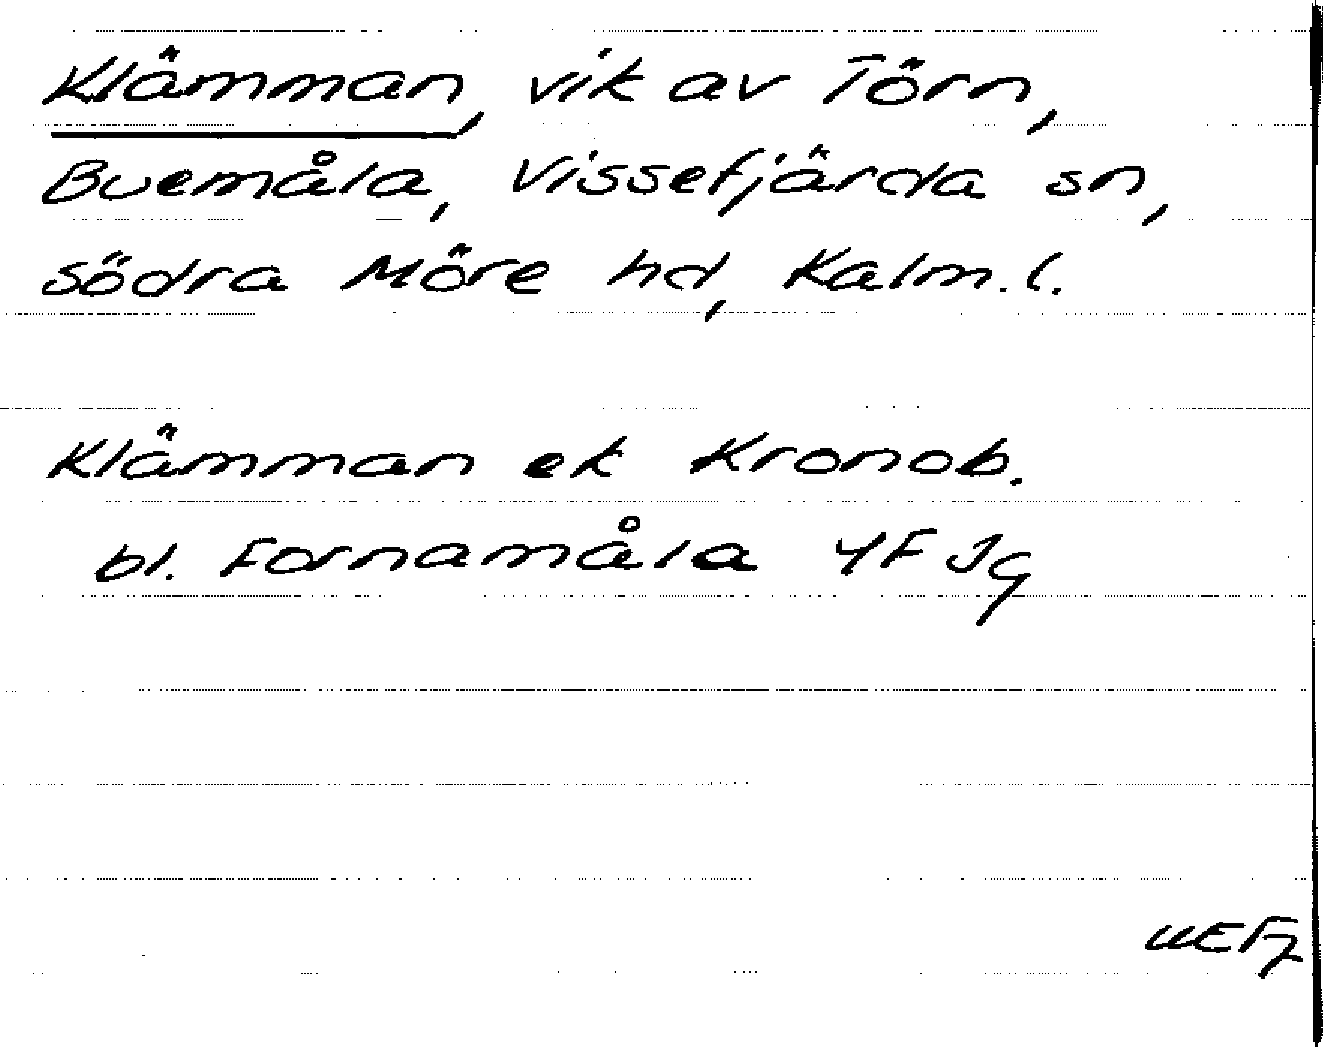 Klämman, vik av Törn,
Buemåla, Vissefjärda sn,
södra Möre hd, Kalm. l.
Klämman ek Kronob.
bl. Fornamåla 4F Jg